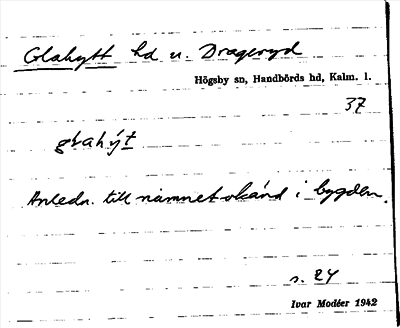 Glahytt hd u. Drageryd
Högsby sn, Handbörds hd, Kalm. l.
37
glahýt
Anledn. till namnet okänd i bygden.
s. 24
Ivar Modéer 1942